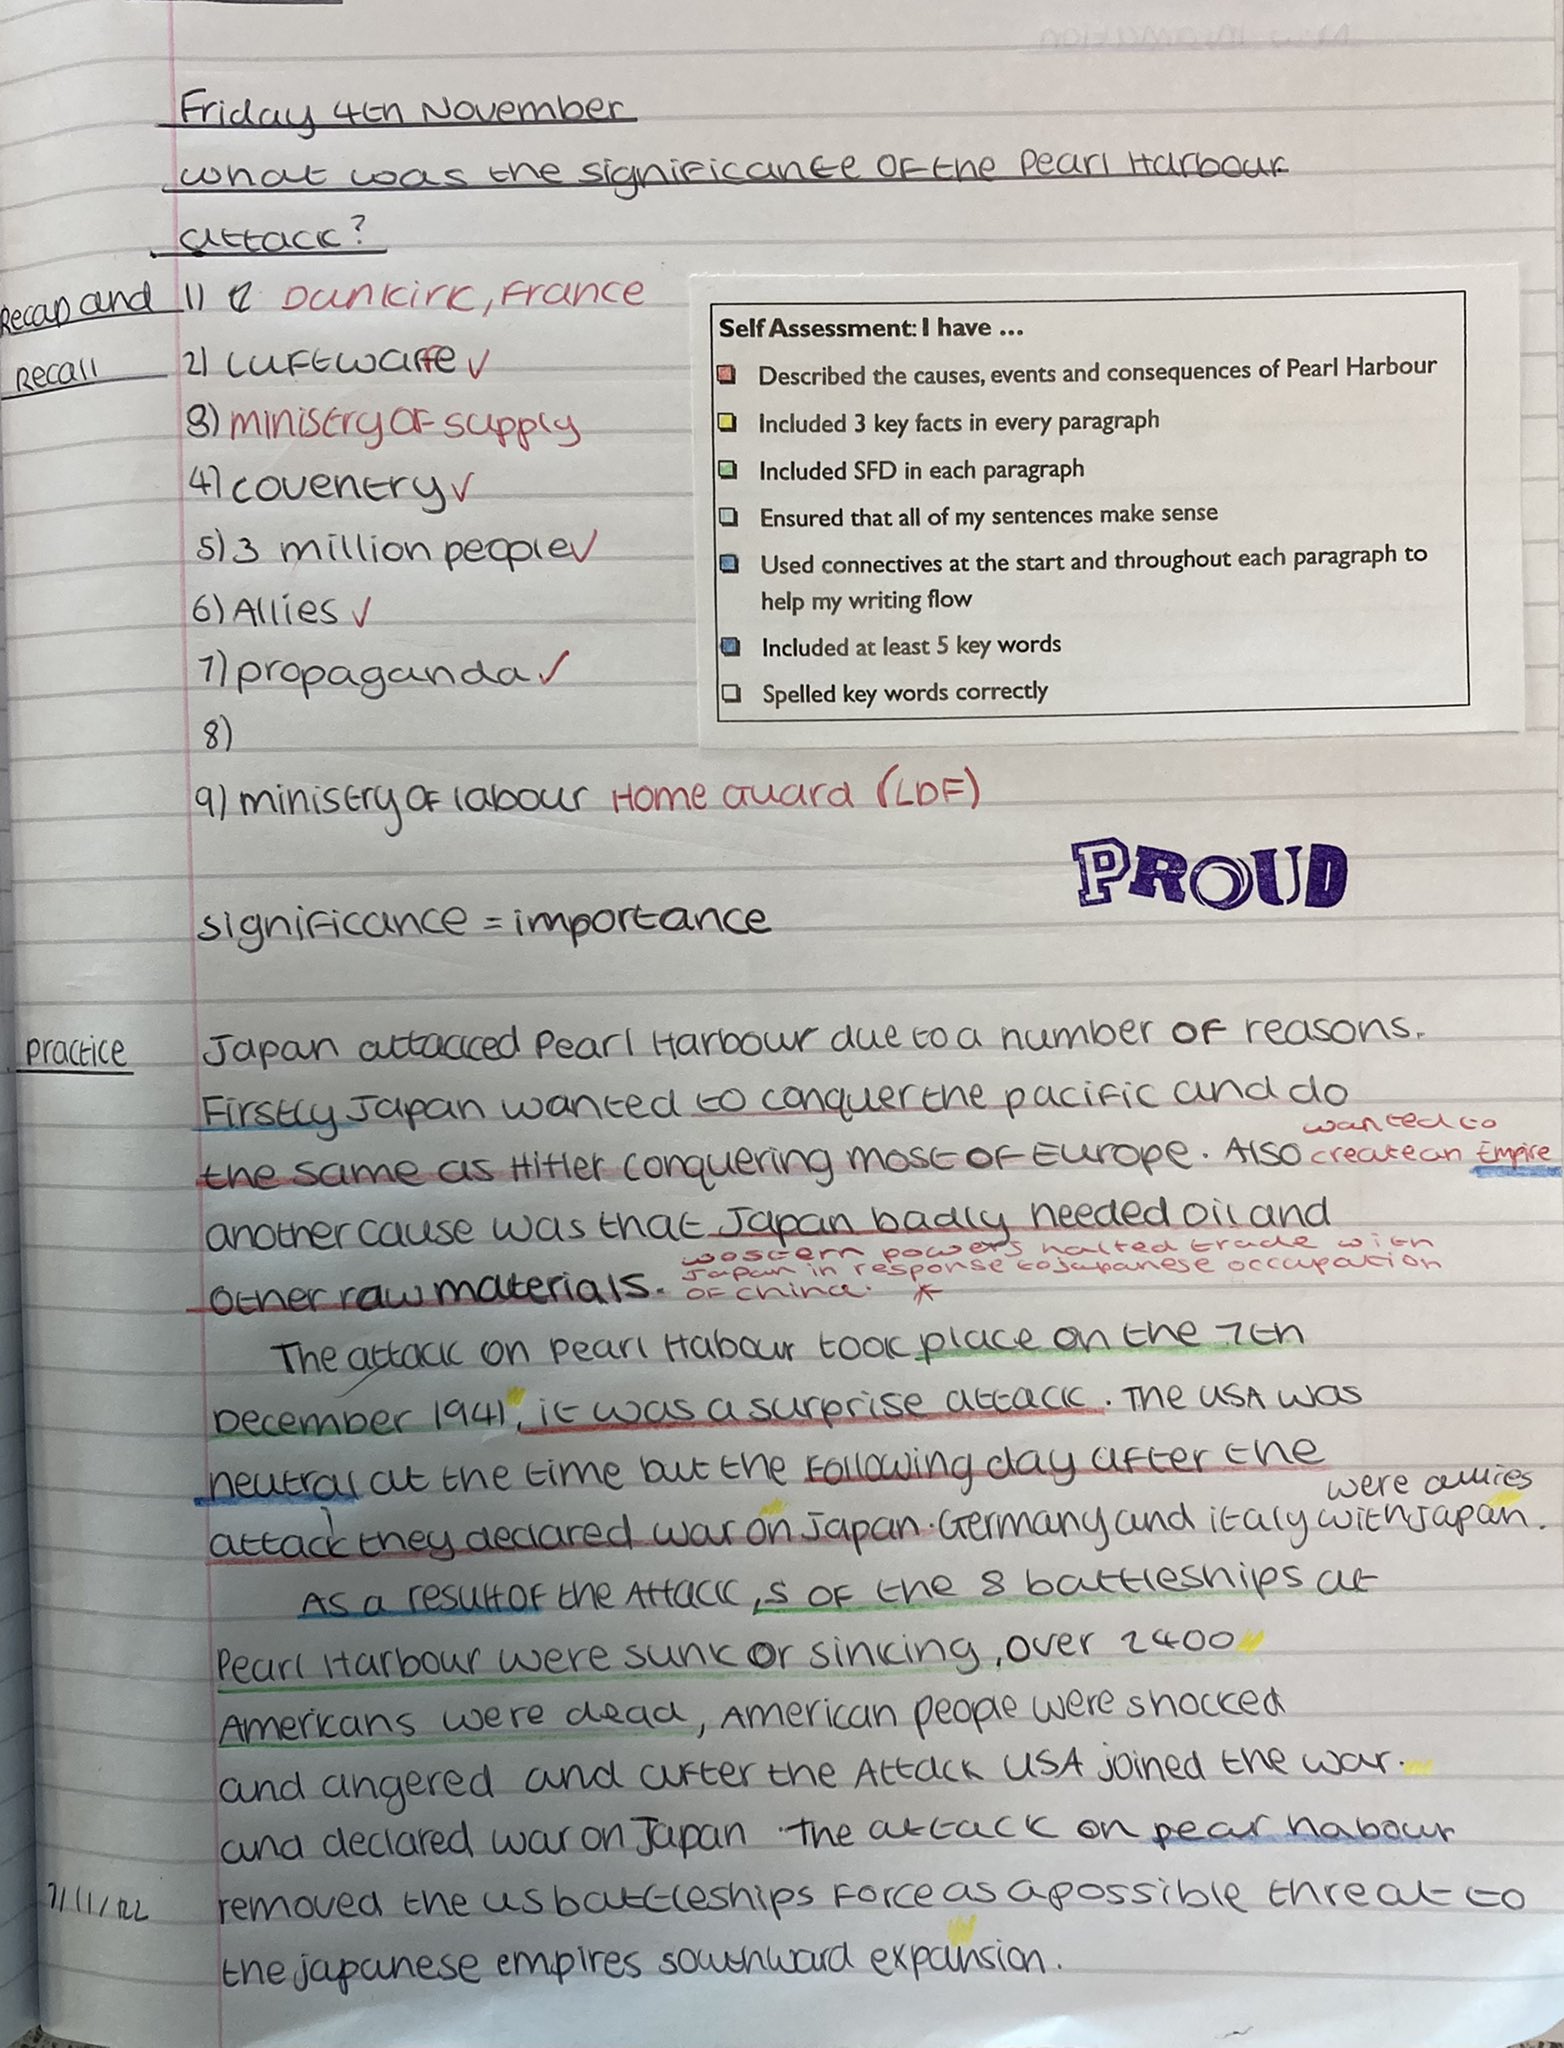 Friday 4th November
What was the significance of the Pearl Harbour
attack?
Recap and
Recall
1) Dunkirk, France
2) Luftwaffe ✓
3) ministry of supply
4) coventry ✓
5) 3 million people ✓
6) Allies ✓
7) propaganda ✓
8)
9) ministry of labour Home Guard (LDF)
Self Assessment: I have ...
Described the causes, events and consequences of Pearl Harbour
Included 3 key facts in every paragraph
Included SFD in each paragraph
Ensured that all of my sentences make sense
Used connectives at the start and throughout each paragraph to
help my writing flow
Included at least 5 key words
Spelled key words correctly
PROUD
significance = importance
Practice
Japan attacked Pearl Harbour due to a number of reasons.
Firstly Japan wanted to conquer the pacific and do
the same as Hitler conquering most of Europe. Also wanted to create an Empire
another cause was that Japan badly needed oil and
other raw materials. western powers halted trade with
Japan in response to Japanese occupation
of china. *
The attack on Pearl Habour took place on the 7th
December 1941, it was a surprise attack. The USA was
neutral at the time but the following day after the
attack, they declared war on Japan. Germany and italy were allies with Japan.
As a result of the Attack, 5 of the 8 battleships at
Pearl Harbour were sunk or sinking, over 2400
Americans were dead, American people were shocked
and angered and after the Attack USA joined the war.
and declared war on Japan. The attack on pear habour
7/11/22
removed the us battleships force as a possible threat to
the japanese empires southward expansion.